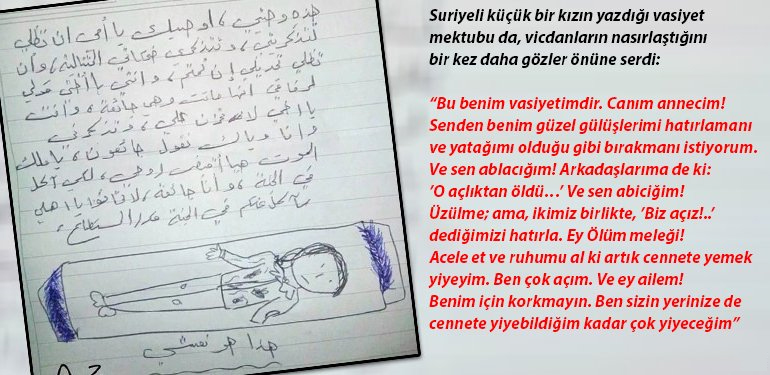 هذه وصيتي، اوصيك يا أمي ان تظلي
تتذكريني، وتتذكري ضحكاتي، وأن
تظلي، وانتي يا أختي قولي
لرفقاتي انها ماتت وهي جائعة، وانت
يا اخي لا تحزن علي، وتتذكرني
وأنا وياك نقول جائعون، يا ملك
الموت هيا اقبض روحي، لكي آكل
في الجنة، وأنا جائعة، لا تخافوا يا اهلي
سآكل عنكم في الجنة قدر المستطاع
هذا هو نعشي
Suriyeli küçük bir kızın yazdığı vasiyet
mektubu da, vicdanların nasırlaştığını
bir kez daha gözler önüne serdi:
“Bu benim vasiyetimdir. Canım annecim!
Senden benim güzel gülüşlerimi hatırlamanı
ve yatağımı olduğu gibi bırakmanı istiyorum.
Ve sen ablacığım! Arkadaşlarıma de ki:
’O açlıktan öldü…’ Ve sen abiciğim!
Üzülme; ama, ikimiz birlikte, ’Biz açız!..’
dediğimizi hatırla. Ey Ölüm meleği!
Acele et ve ruhumu al ki artık cennete yemek
yiyeyim. Ben çok açım. Ve ey ailem!
Benim için korkmayın. Ben sizin yerinize de
cennete yiyebildiğim kadar çok yiyeceğim”